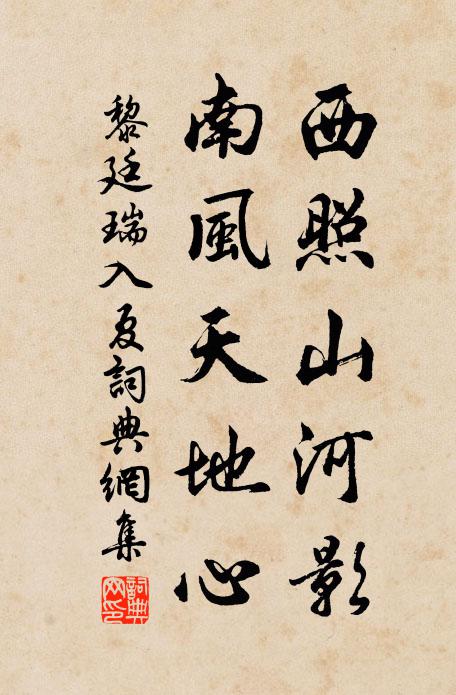 西照山河影
南風天地心
黎廷瑞入夏詞典網集
詞典网印